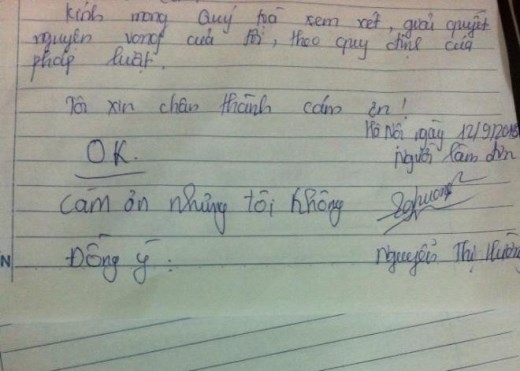 Kính mong Quý toà xem xét, giải quyết
nguyện vọng của tôi, theo quy định của
pháp luật.
Tôi xin chân thành cảm ơn!
Hà Nội ngày 12/9/201
OK.
Người làm đơn
Cám ơn nhưng tôi không
Đồng ý:
Nguyễn Thị Hường
N